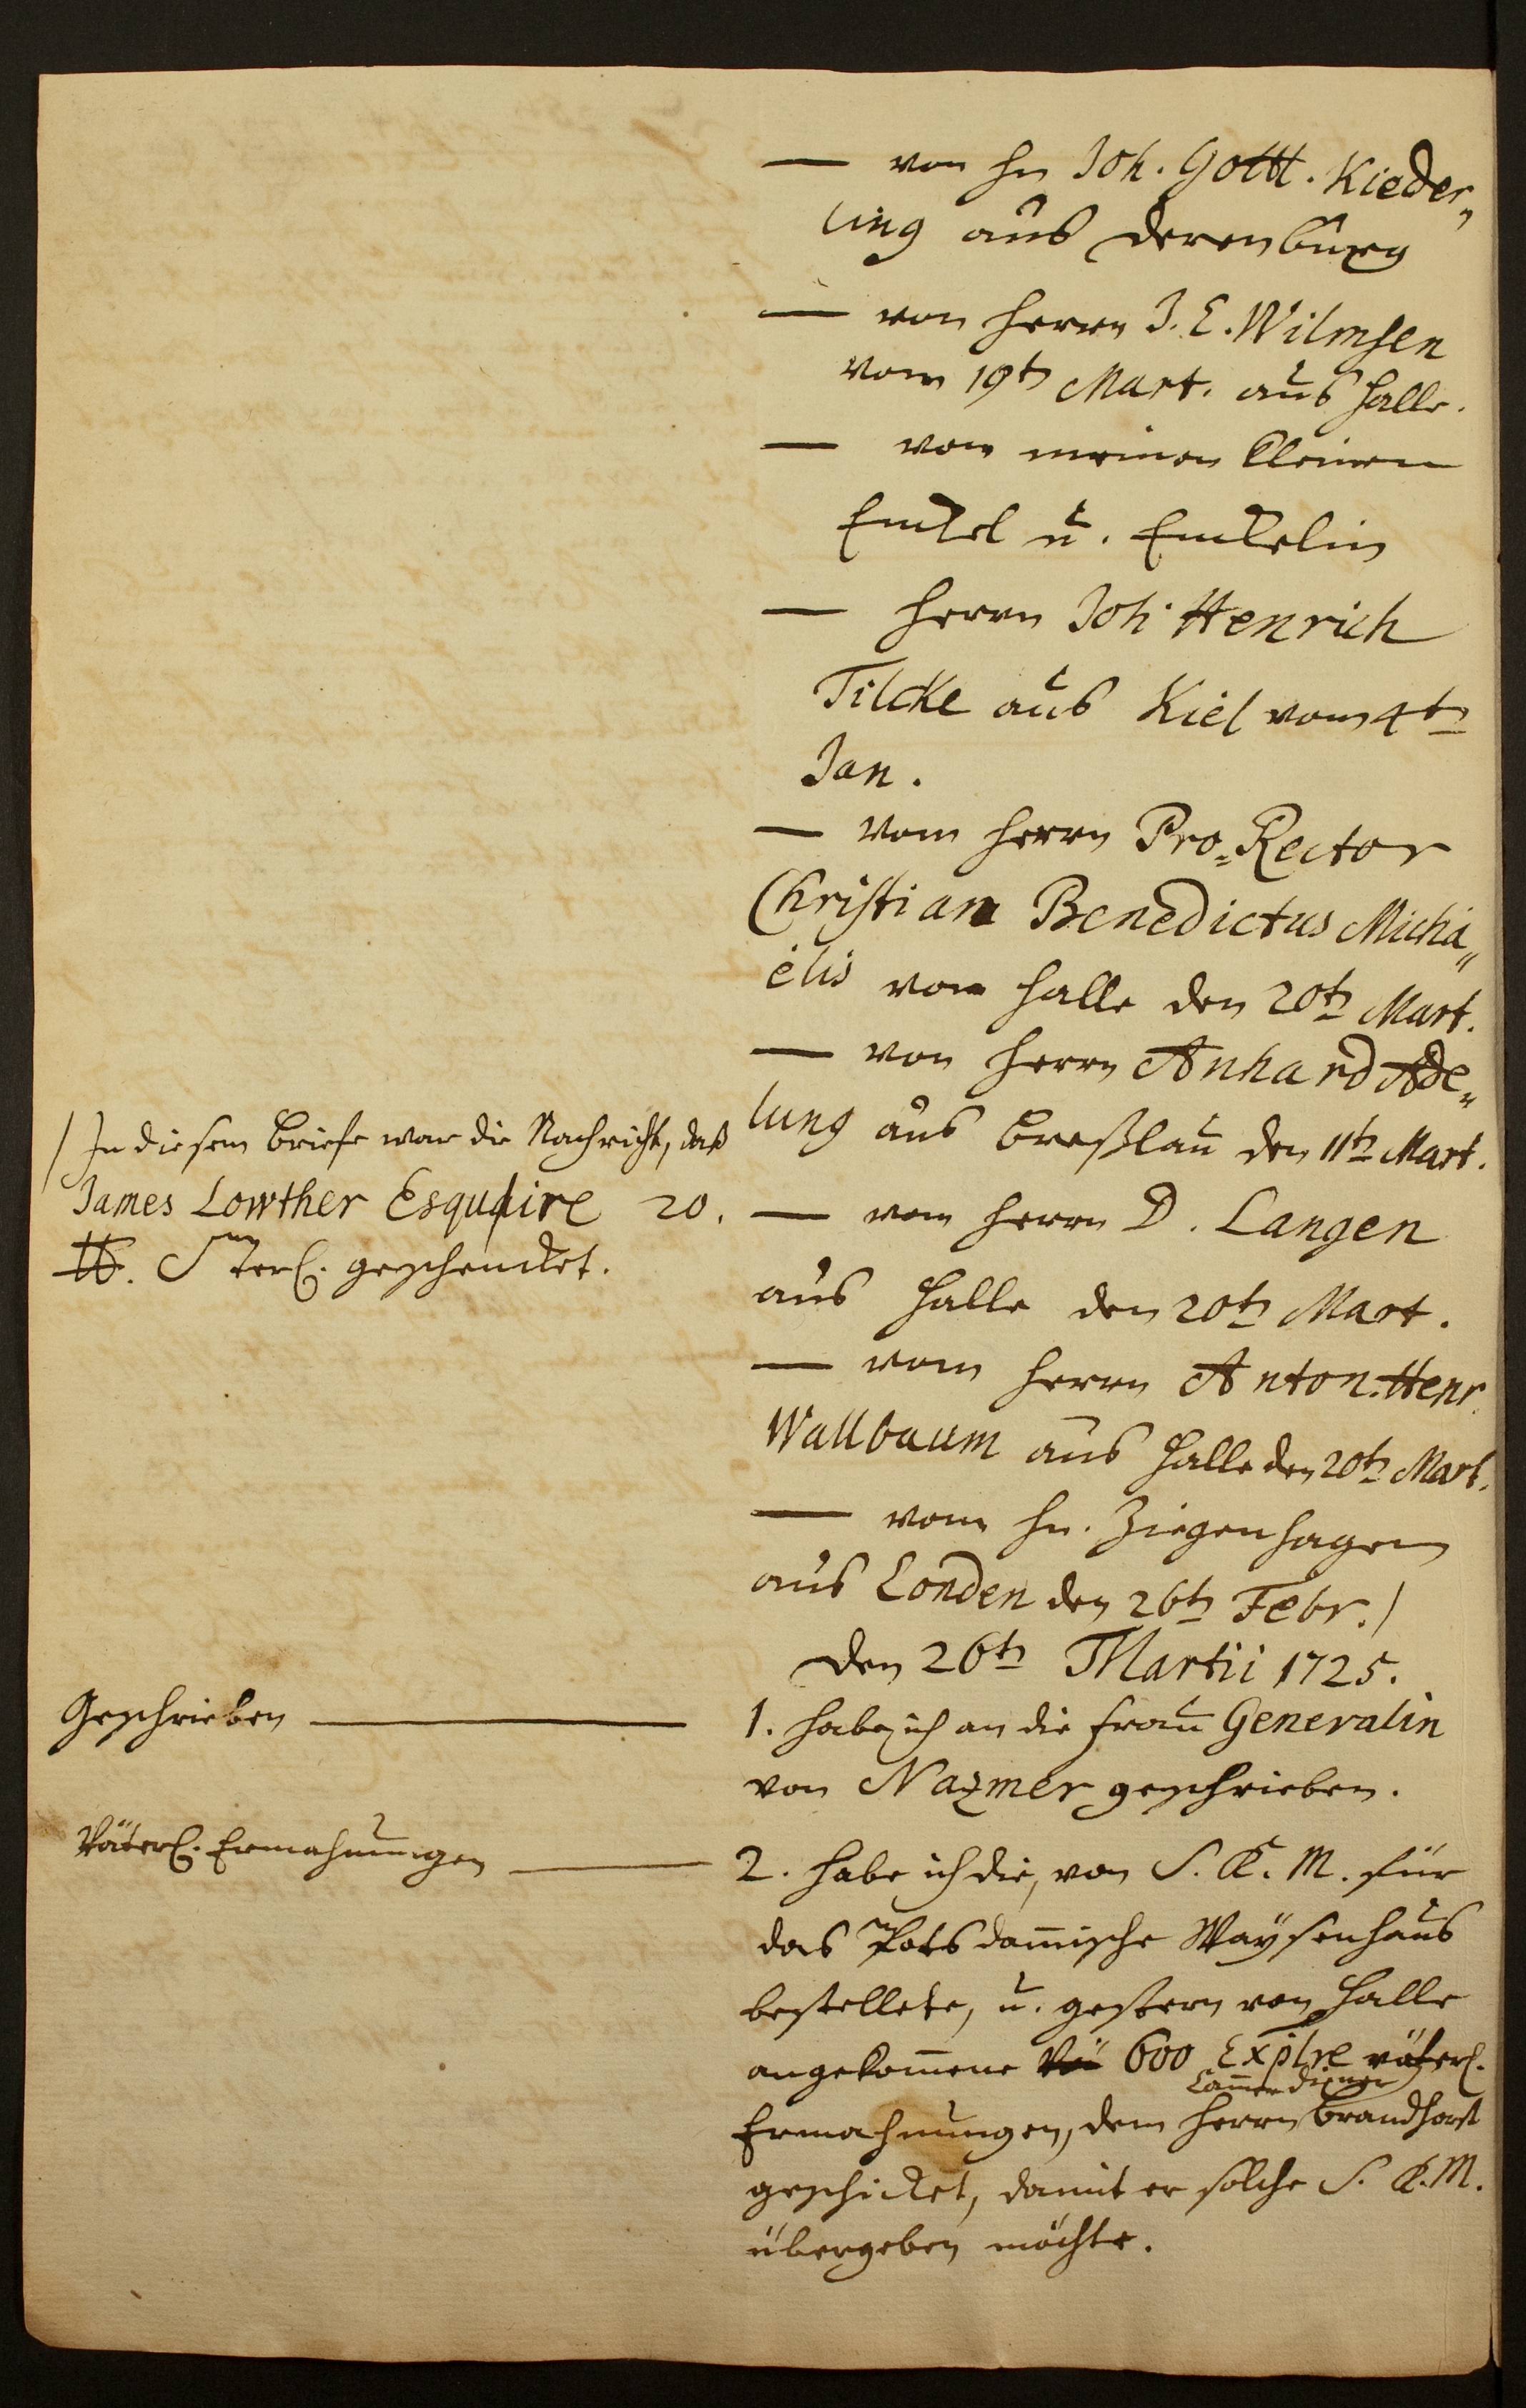 — von Hn Joh. Gottl. Kieder„
ling aus Derenburg
— von Herrn J. E. Wilmsen
vom 19t Mart. aus Halle.
— von meinen kleinen
Enckel u. Enckelin
— Herrn Joh. Henrich
Tilcke aus Kiel vom 4t
Jan.
— vom Herrn Pro=Rector
Christian Benedictus Micha„
elis von Halle den 20t Mart.
— von Herrn Anhard Ade„
lung aus Breßlau den 11t Mart.
— von Herrn D. Langen
aus Halle den 20t Mart.
— vom Herrn Anton. Henr.
Wallbaum aus Halle den 20t Mart.
— vom Hn. Ziegenhagen
aus Londen den 26t Febr. /
/ In diesem Briefe war die Nachricht, daß
James Lowther Esquire 20.
℔. Sterl. geschencket.
Den 26t Martii 1725.
Geschrieben —
1. habe ich an die Frau Generalin
von Nazmer geschrieben.
Väterl. Ermahnungen —
2. habe ich die, von S. K. M. für
das Potsdam̄ische Waysenhaus
bestellete, u. gestern von Halle
angekom̄ene 600 Explre väterl.
Cam̄erdiener
Ermahnungen, dem Herrn Brandhorst
geschicket, damit er solche S. K. M.
übergeben möchte.